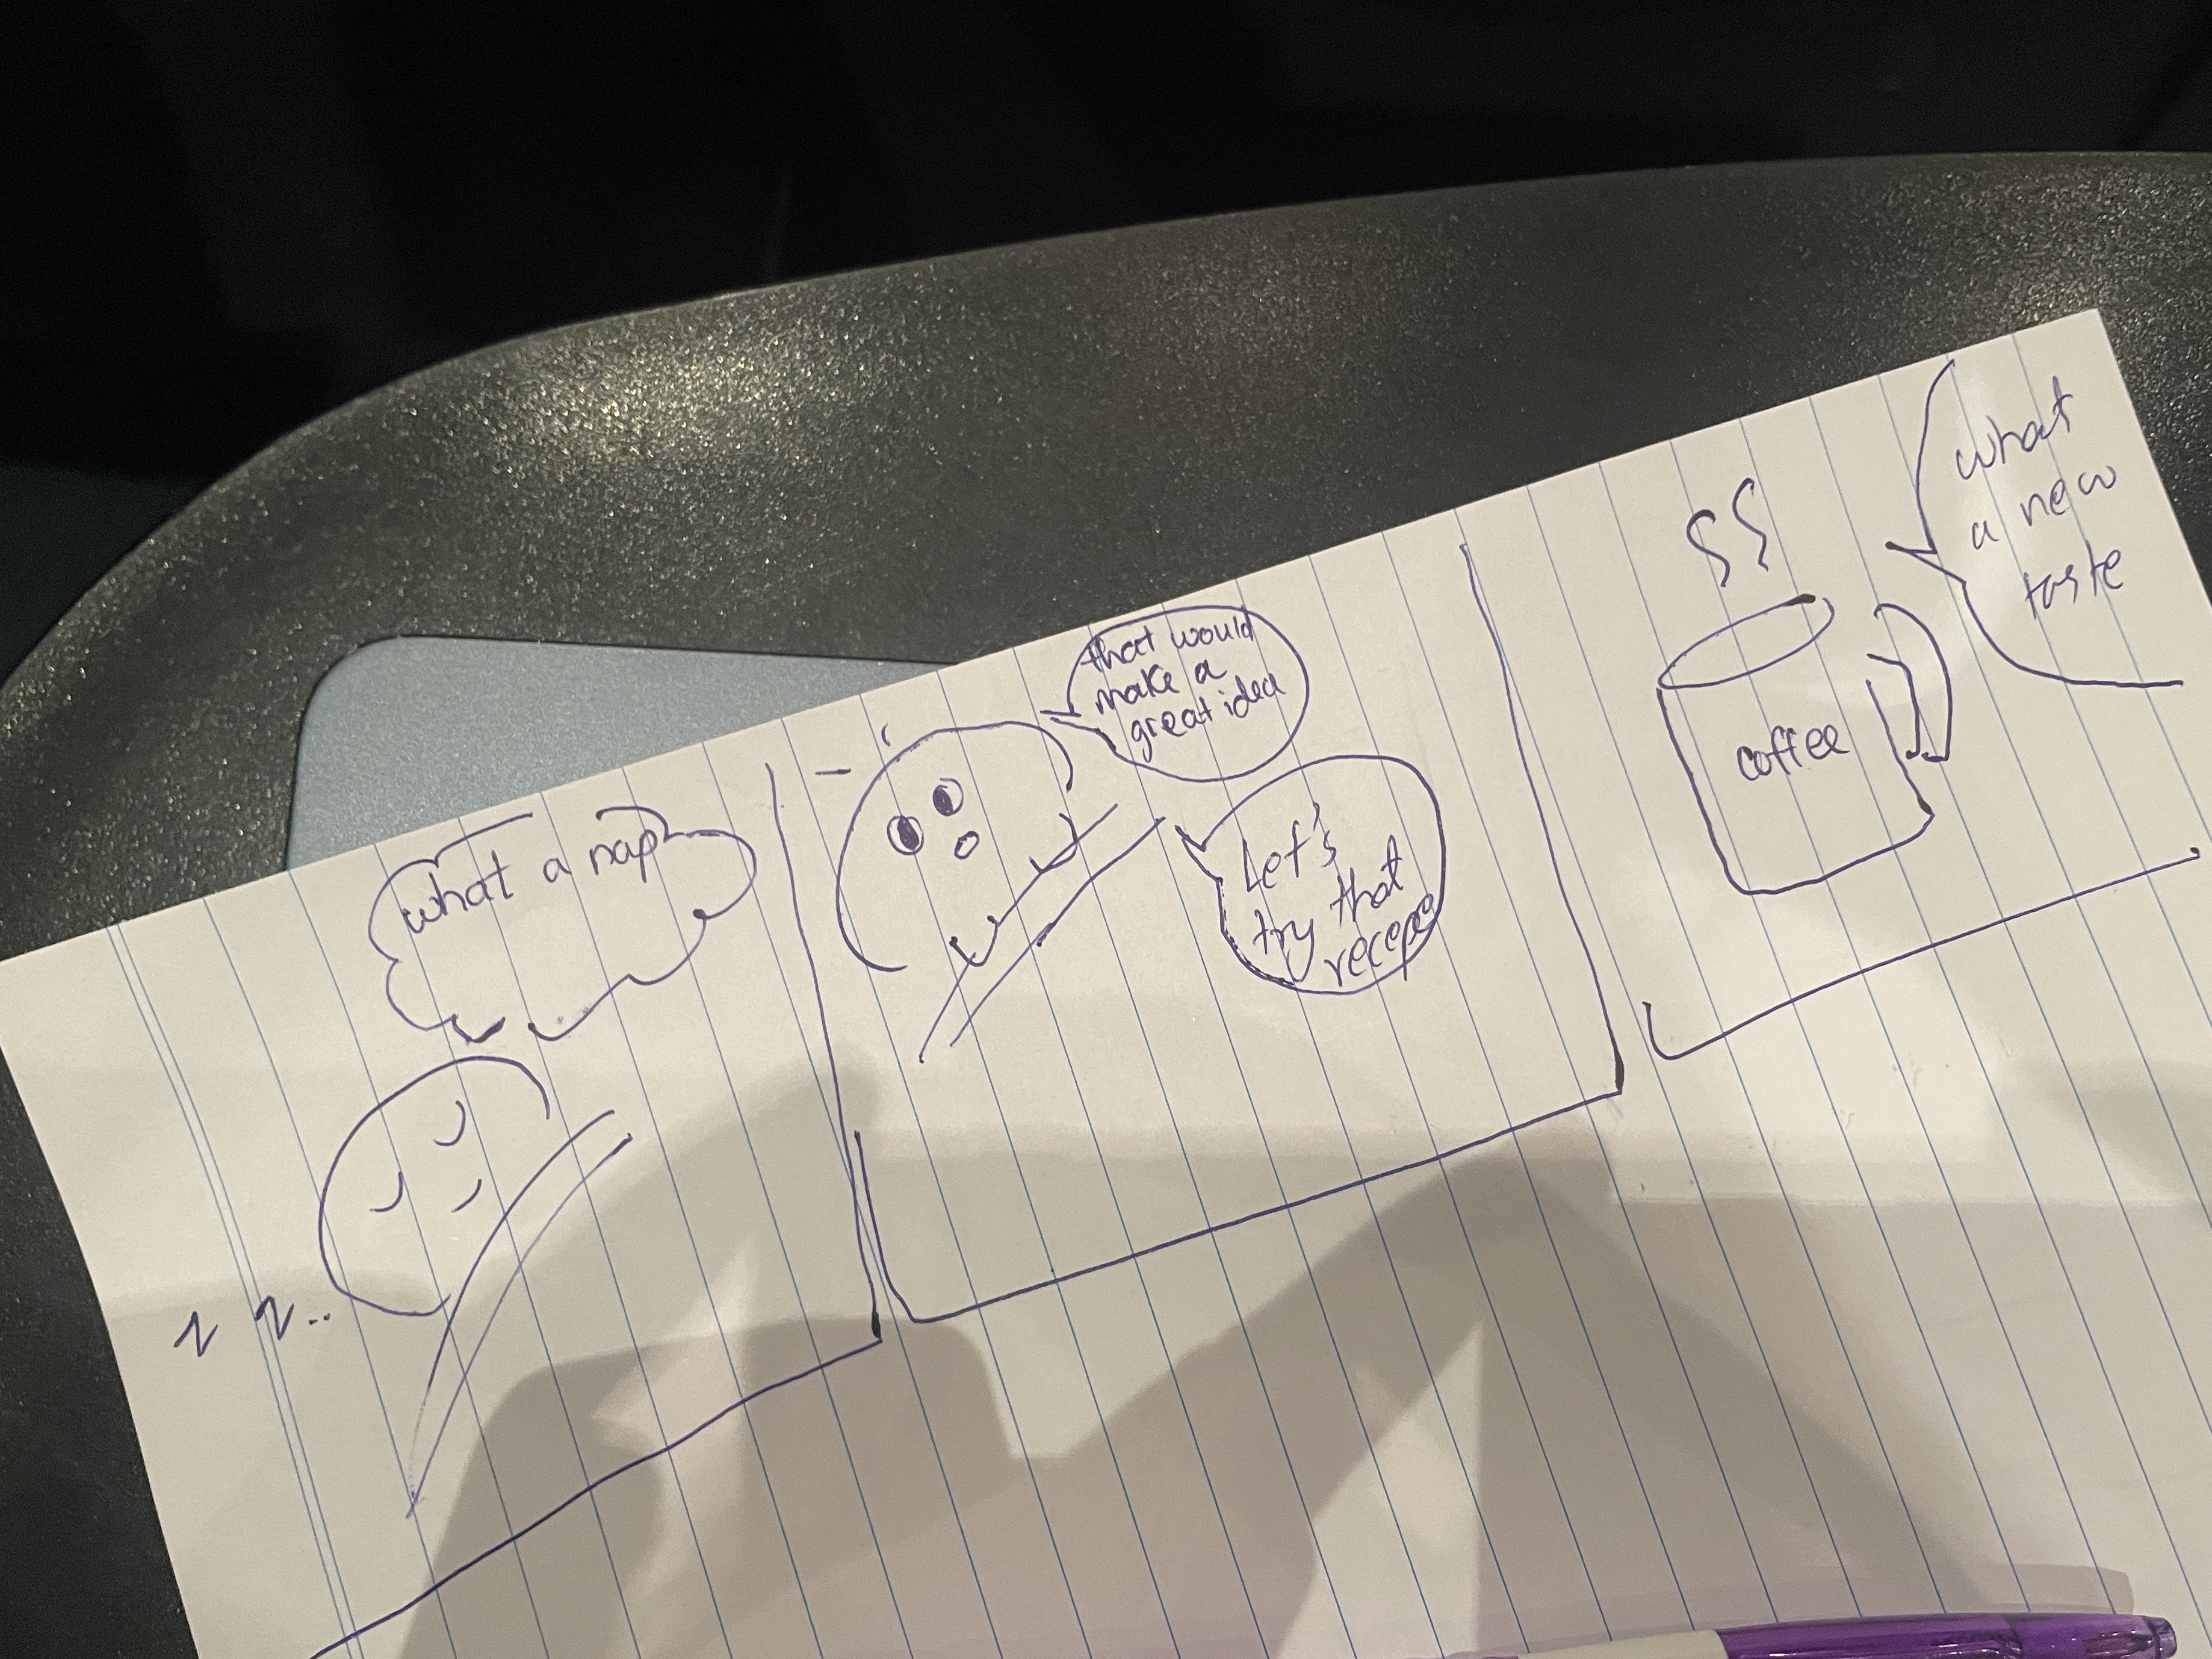 what a nap
z z..
that would
make a
great idea
Let's
try that
recepe
coffee
what
a new
taste